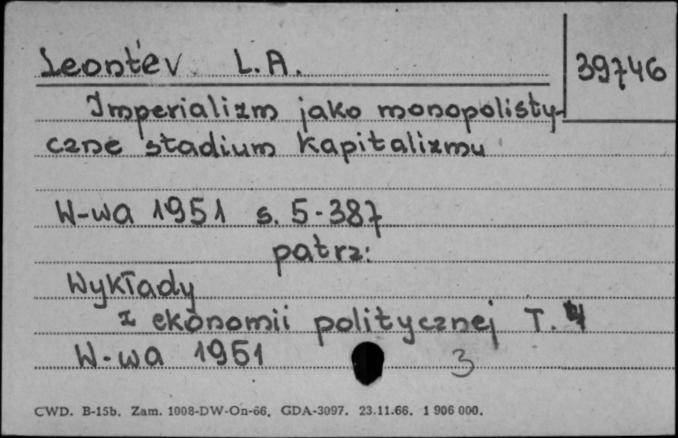 Leont'ev L.A.
39746
Imperializm jako monopolisty-
czne stadium kapitalizmu
W-wa 1951 s. 5-387
patrz:
Wykłady
z ekonomii politycznej T.
W-wa 1951
3
CWD. B-15b. Zam. 1008-DW-On-66. GDA-3097. 23.11.66. 1 906 000.